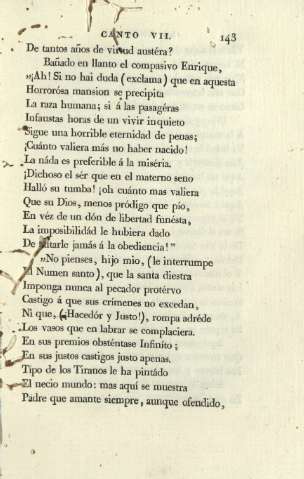 CANTO VII. 143
De tantos años de virtud austéra?
Bañado en llanto el compasivo Enrique,
»¡Ah! Si no hai duda (exclama) que en aquesta
Horrorósa mansion se precipita
La raza humana; si á las pasagéras
Infaustas horas de un vivir inquieto
Sigue una horrible eternidad de penas;
¡Cuánto valiera más no haber nacido!
La náda es preferible á la miséria.
¡Dichoso el sér que en el materno seno
Halló su tumba! ¡oh cuánto mas valiera
Que su Dios, menos pródigo que pío,
En véz de un dón de libertad funésta,
La imposibilidád le hubiera dado
De faltarle jamás á la obediencia!"
»No pienses, hijo mio, (le interrumpe
El Numen santo), que la santa diestra
Imponga nunca al pecador protérvo
Castigo á que sus crímenes no excedan,
Ni que, (¡Hacedór y Justo!), rompa adréde
Los vasos que en labrar se complaciera.
En sus premios obsténtase Infiníto;
En sus justos castigos justo apenas.
Tipo de los Tiranos le ha pintádo
El necio mundo: mas aquí se muestra
Padre que amante siempre, aunque ofendido,